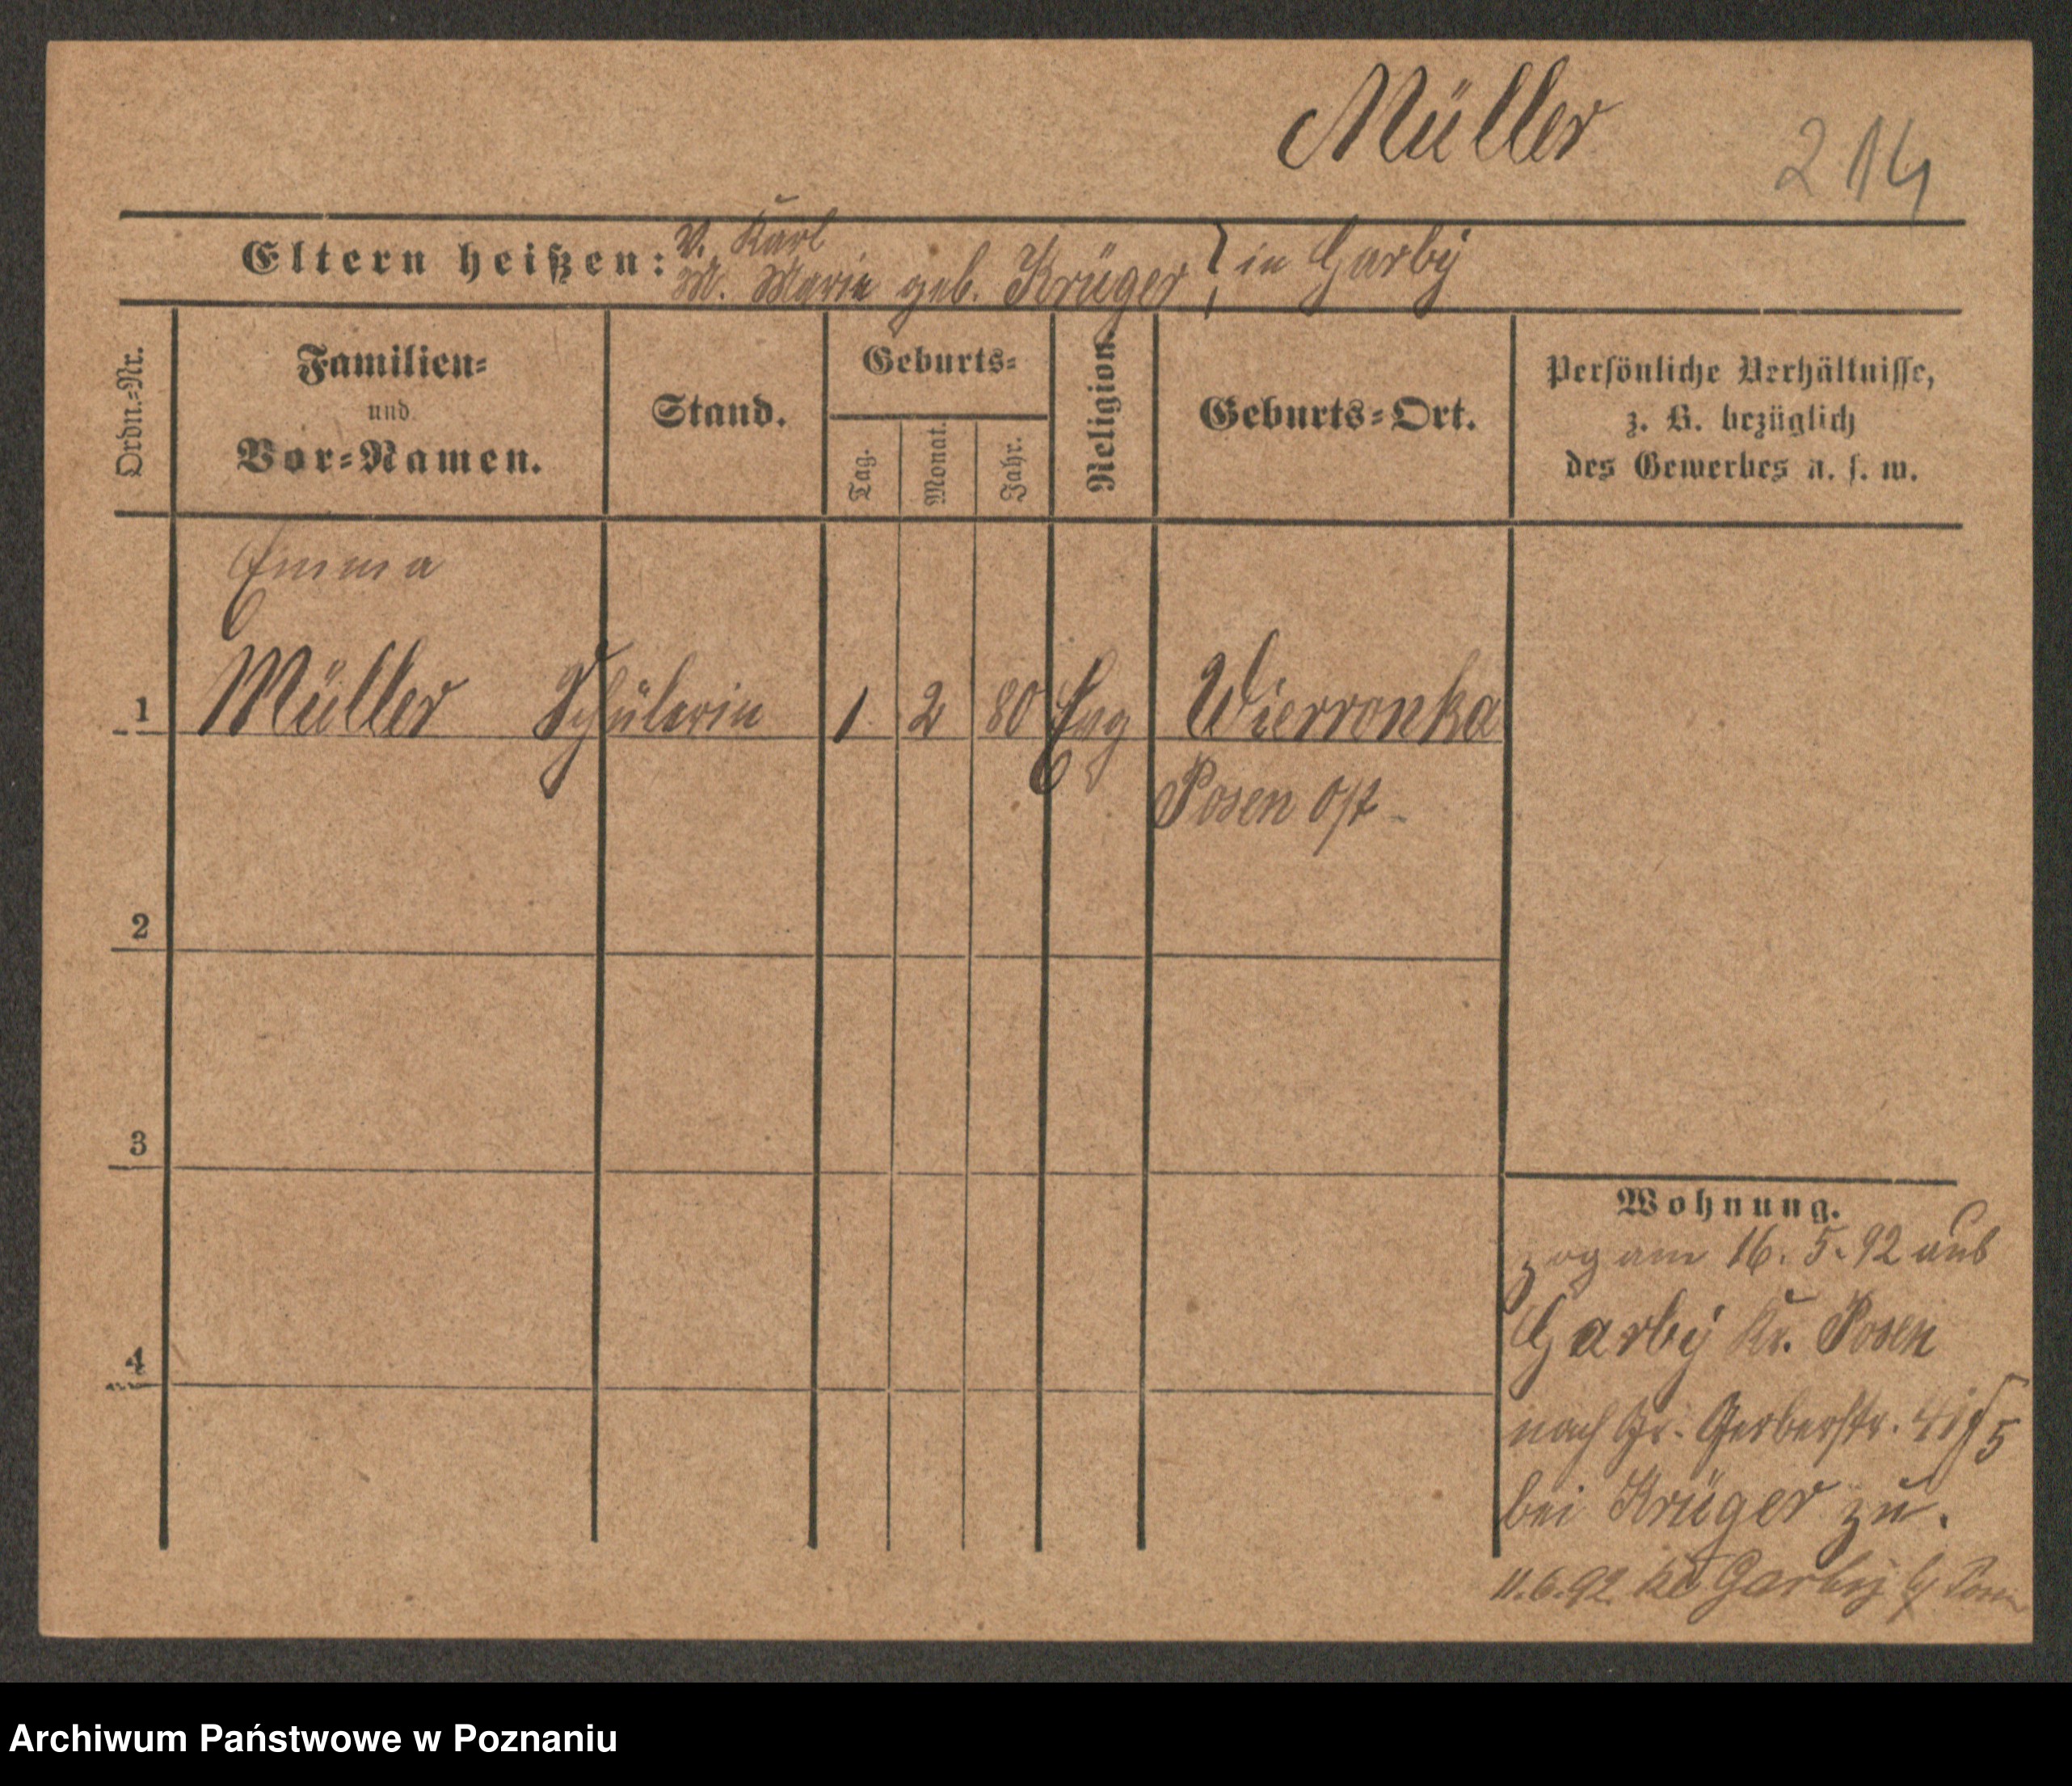 Müller
214
V. Karl
Eltern heißen: M. Marie geb. Krüger } in Garby
Ordn.-Nr.
Familien-
und
Vor-Namen.
Stand.
Geburts-
Tag.
Monat.
Jahr.
Religion.
Geburts-Ort.
Persönliche Verhältnisse,
z. B. bezüglich
des Gewerbes u. s. w.
Emma
1 Müller Schülerin 1. 2 80 Evg Wierronka
Posen Ost
2
3
4
Wohnung.
zog am 16. 5. 92 aus
Garby Kr. Posen
nach Gr. Gerberstr.
bei Krüger zu.
11.6.92. Garby
Archiwum Państwowe w Poznaniu